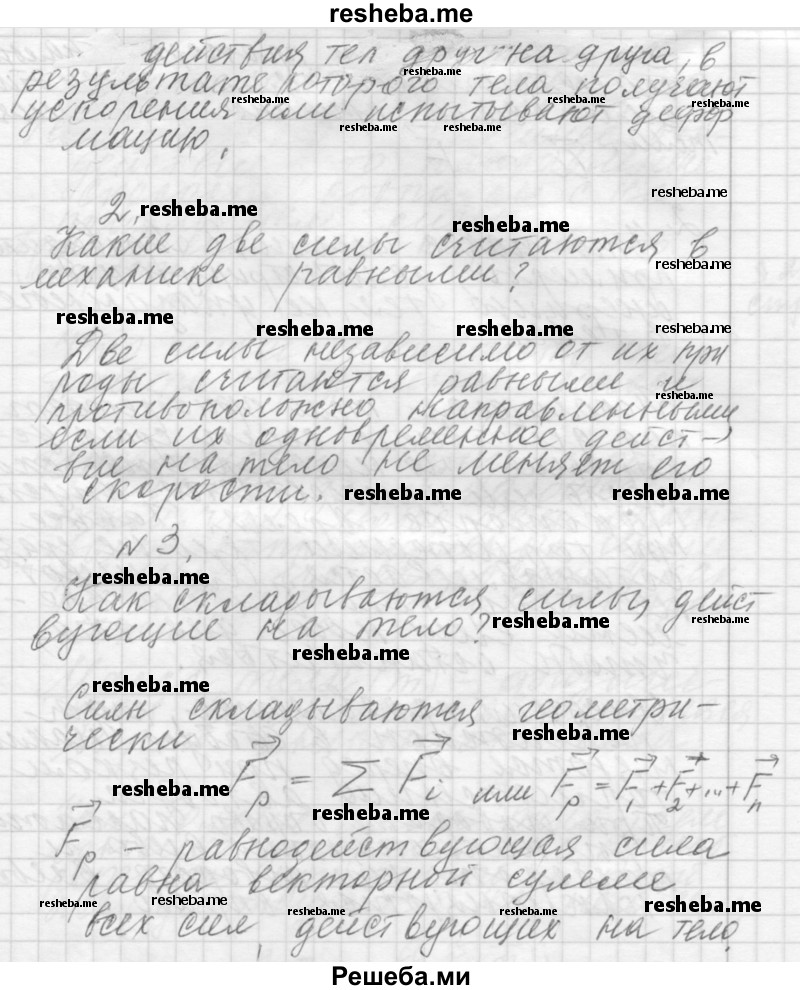 resheba.me
действия тел друг на друга, в
resheba.me
результате которого тела получают
resheba.me resheba.me resheba.me
ускорения или испытывают дефор
resheba.me resheba.me
мацию.
resheba.me
2. resheba.me
resheba.me
Какие две силы считаются в
resheba.me
механике равными?
resheba.me
resheba.me resheba.me resheba.me
Две силы независимо от их при
роды считаются равными и
resheba.me
противоположно направленными
если их одновременное дейст-
вие на тело не меняет его
скорости. resheba.me resheba.me
№ 3.
resheba.me
Как складываются силы, дейст
вующие на тело? resheba.me resheba.me
resheba.me
resheba.me
Силы складываются геометри-
чески resheba.me
resheba.me F⃗p = Σ F⃗i или F⃗p = F⃗1 + F⃗2 + ... + F⃗n
resheba.me
F⃗p - равнодействующая сила
равна векторной сумме
resheba.me resheba.me resheba.me
resheba.me resheba.me
всех сил, действующих на тело.
Решеба.ми